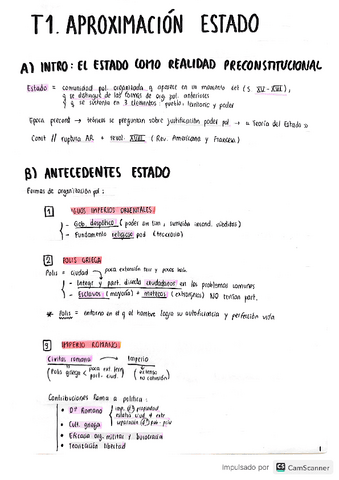 T1. APROXIMACIÓN ESTADO
A) INTRO: EL ESTADO COMO REALIDAD PRECONSTITUCIONAL
Estado = comunidad pol. organizada q aparece en un momento det (s. XV-XVI),
q se distingue de las formas de org pol. anteriores
y q se sustenta en 3 elementos: pueblo, territorio y poder
Época preconst → teóricos se preguntan sobre justificación poder pol. → « Teoría del Estado »
Const // ruptura AR + revol. XVIII (Rev. Americana y Francesa)
B) ANTECEDENTES ESTADO
Formas de organización pol :
1 IMPERIOS ORIENTALES
- Gob. despótico ( poder sin lím ; sumisión incond. súbditos)
- Fundamento religioso pod (teocracia)
2 POLIS GRIEGA
Polis = ciudad → poca extensión terr y pocos hab.
- Integr y part. directa ciudadanos en los problemas comunes
- Esclavos (mayoría) + metecos (extranjeros) NO tenían part.
* Polis = entorno en el q el hombre logra su autosuficiencia y perfección vida
3 IMPERIO ROMANO
Civitas romana → Imperio
(Polis griega < poca ext terr part. ciud. ) (extenso no cohesión)
Contribuciones Roma a política :
• Dº Romano
• Cult. griega
• Eficacia org. militar y burocracia
• Teorización libertad
1
Impulsado por CS CamScanner